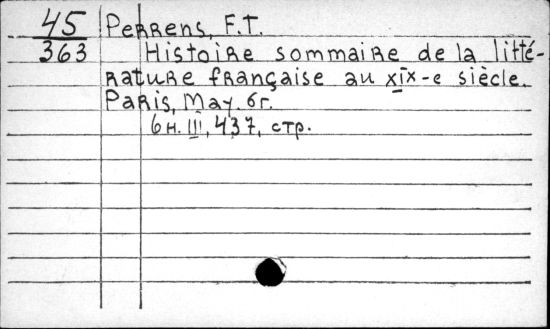 45
363
Perrens, F.T.
Histoire sommaire de la litté-
rature française au XIX-e siècle.
Paris, May. б г.
6 н. III, 437, стр.